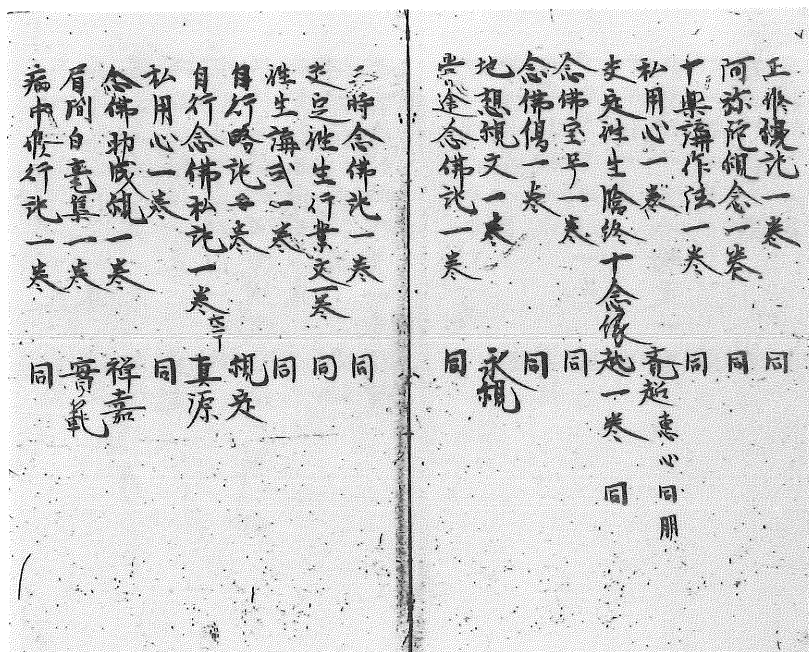 正修観記一巻 同
阿弥陀観念一巻 同
十楽講作法一巻 同
私用心一巻 斉超 恵心同朋
決定往生臨終十念縁起一巻 同
念佛宝号一巻 同
念佛偈一巻 同
地想観文一巻 永観
念佛記一巻 同
三時念佛記一巻 同
決定往生行業文一巻 同
往生講式一巻 同
自行略記一巻 覚
自行念佛私記一巻 真源
私用心一巻 同
念佛助成観一巻 禅嘉
眉間白毫集一巻 實範
病中修行記一巻 同